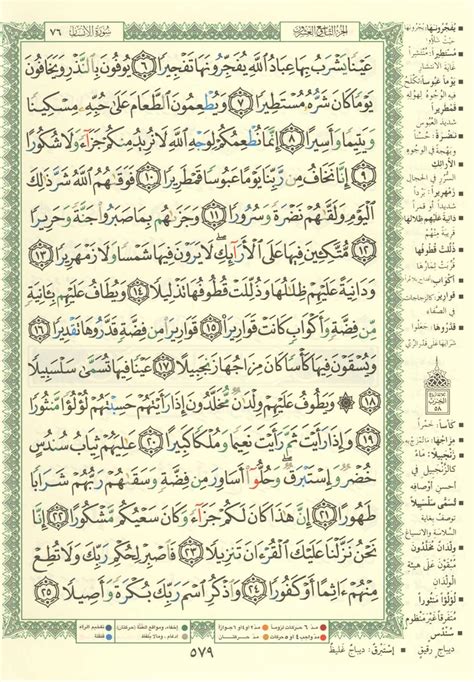 سُورَةُ الإنسَان ٧٦
الجزء التاسع والعشرون
عَيْنًا يَشْرَبُ بِهَا عِبَادُ ٱللَّهِ يُفَجِّرُونَهَا تَفْجِيرًا ٦ يُوفُونَ بِٱلنَّذْرِ وَيَخَافُونَ
يَوْمًا كَانَ شَرُّهُۥ مُسْتَطِيرًا ٧ وَيُطْعِمُونَ ٱلطَّعَامَ عَلَىٰ حُبِّهِۦ مِسْكِينًا
وَيَتِيمًا وَأَسِيرًا ٨ إِنَّمَا نُطْعِمُكُمْ لِوَجْهِ ٱللَّهِ لَا نُرِيدُ مِنكُمْ جَزَآءً وَلَا شُكُورًا
٩ إِنَّا نَخَافُ مِن رَّبِّنَا يَوْمًا عَبُوسًا قَمْطَرِيرًا ١٠ فَوَقَىٰهُمُ ٱللَّهُ شَرَّ ذَٰلِكَ
ٱلْيَوْمِ وَلَقَّىٰهُمْ نَضْرَةً وَسُرُورًا ١١ وَجَزَىٰهُم بِمَا صَبَرُوا۟ جَنَّةً وَحَرِيرًا
١٢ مُّتَّكِـِٔينَ فِيهَا عَلَى ٱلْأَرَآئِكِ ۖ لَا يَرَوْنَ فِيهَا شَمْسًا وَلَا زَمْهَرِيرًا ١٣
وَدَانِيَةً عَلَيْهِمْ ظِلَٰلُهَا وَذُلِّلَتْ قُطُوفُهَا تَذْلِيلًا ١٤ وَيُطَافُ عَلَيْهِم بِـَٔانِيَةٍ
مِّن فِضَّةٍ وَأَكْوَابٍ كَانَتْ قَوَارِيرَا۠ ١٥ قَوَارِيرَا۟ مِن فِضَّةٍ قَدَّرُوهَا تَقْدِيرًا ١٦
وَيُسْقَوْنَ فِيهَا كَأْسًا كَانَ مِزَاجُهَا زَنجَبِيلًا ١٧ عَيْنًا فِيهَا تُسَمَّىٰ سَلْسَبِيلًا
١٨ ۞ وَيَطُوفُ عَلَيْهِمْ وِلْدَٰنٌ مُّخَلَّدُونَ إِذَا رَأَيْتَهُمْ حَسِبْتَهُمْ لُؤْلُؤًا مَّنثُورًا
١٩ وَإِذَا رَأَيْتَ ثَمَّ رَأَيْتَ نَعِيمًا وَمُلْكًا كَبِيرًا ٢٠ عَٰلِيَهُمْ ثِيَابُ سُندُسٍ
خُضْرٌ وَإِسْتَبْرَقٌ ۖ وَحُلُّوٓا۟ أَسَاوِرَ مِن فِضَّةٍ وَسَقَىٰهُمْ رَبُّهُمْ شَرَابًا
طَهُورًا ٢١ إِنَّ هَٰذَا كَانَ لَكُمْ جَزَآءً وَكَانَ سَعْيُكُم مَّشْكُورًا ٢٢ إِنَّا
نَحْنُ نَزَّلْنَا عَلَيْكَ ٱلْقُرْءَانَ تَنزِيلًا ٢٣ فَٱصْبِرْ لِحُكْمِ رَبِّكَ وَلَا تُطِعْ
مِنْهُمْ ءَاثِمًا أَوْ كَفُورًا ٢٤ وَٱذْكُرِ ٱسْمَ رَبِّكَ بُكْرَةً وَأَصِيلًا ٢٥
يُفَجِّرُونَهَا
مُسْتَطِيرًا
يَوْمًا عَبُوسًا
قَمْطَرِيرًا
شديد العُبُوس
نَضْرَةً: حُسْنًا
الأرائك
السُّرُر في الحجال
زَمْهَرِيرًا
دَانِيَةً عليهم ظلالها
قريبة منهم
ذُلِّلَتْ قُطُوفُهَا
قُرِّبَت ثمارُها
أكواب
قوارير: كالزجاجات
في الصفاء
قَدَّرُوهَا: جعلوا
شرابها على قدر الرّي
الحزب
٥٨
كَأْسًا: خمرًا
مِزاجها
زَنْجَبِيلًا: ماءً
كالزنجبيل في
أحسن أوصافه
تُسَمَّى سَلْسَبِيلًا
توصف بغاية
السلاسة والانسياغ
وِلْدَانٌ مُخَلَّدُونَ
مُبْقَوْنَ على هيئة
الولدان
لُؤْلُؤًا مَنْثُورًا
متفرّقًا غير منظوم
سُنْدُسٍ
ديباج رقيق
إِسْتَبْرَقٌ: ديباج غليظ
مد ٦ حركات لزومًا
مد ٢ أو ٤ أو ٦ جوازًا
إخفاء، ومواقع الغنة (حركتان)
تفخيم الراء
مد واجب ٤ أو ٥ حركات
مد حركتان
إدغام، وما لا يلفظ
قلقلة
٥٧٩